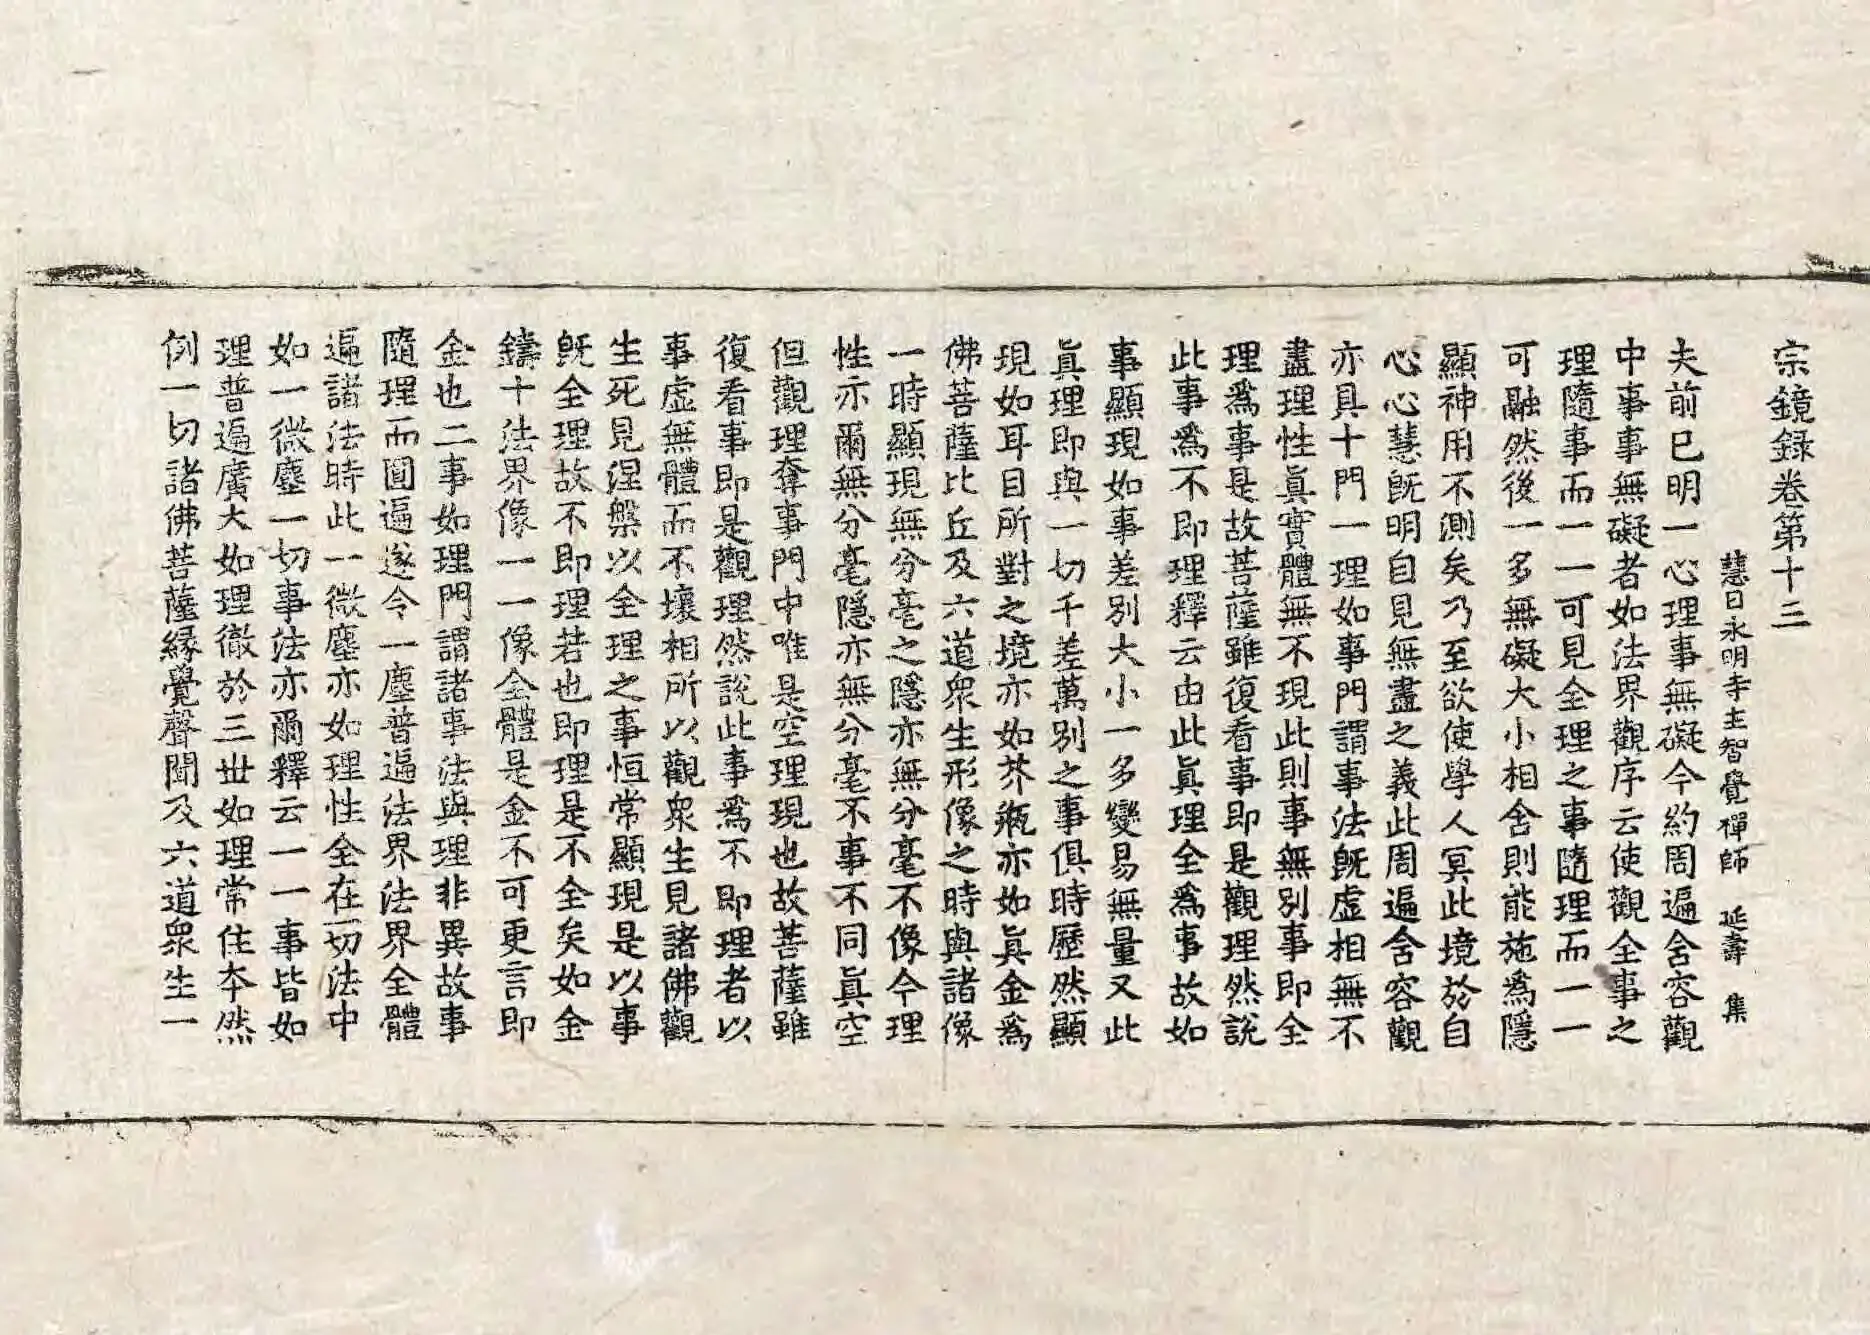 宗鏡錄卷第十三
慧日永明寺主智覺禪師 延壽 集
夫前已明一心理事無礙今約周遍含容觀
中事事無礙者如法界觀序云使觀全事之
理隨事而一一可見全理之事隨理而一一
可融然後一多無礙大小相含則能施爲隱
顯神用不測矣乃至欲使學人冥此境於自
心心慧旣明自見無盡之義此周遍含容觀
亦具十門一理如事門謂事法旣虛相無不
盡理性眞實體無不現此則事無別事即全
理爲事是故菩薩雖復看事即是觀理然說
此事爲不即理釋云由此眞理全爲事故如
事顯現如事差別大小一多變易無量又此
眞理即與一切千差萬別之事俱時歷然顯
現如耳目所對之境亦如芥瓶亦如眞金爲
佛菩薩比丘及六道衆生形像之時與諸像
一時顯現無分毫之隱亦無分毫不像今理
性亦爾無分毫隱亦無分毫不事不同眞空
但觀理奪事門中唯是空理現也故菩薩雖
復看事即是觀理然說此事爲不即理者以
事虛無體而不壞相所以觀衆生見諸佛觀
生死見涅槃以全理之事恒常顯現是以事
旣全理故不即理若也即理是不全矣如金
鑄十法界像一一像全體是金不可更言即
金也二事如理門謂諸事法與理非異故事
隨理而圓遍遂令一塵普遍法界法界全體
遍諸法時此一微塵亦如理性全在一切法中
如一微塵一切事法亦爾釋云一一事皆如
理普遍廣大如理徹於三世如理常住本然
例一切諸佛菩薩緣覺聲聞及六道衆生一